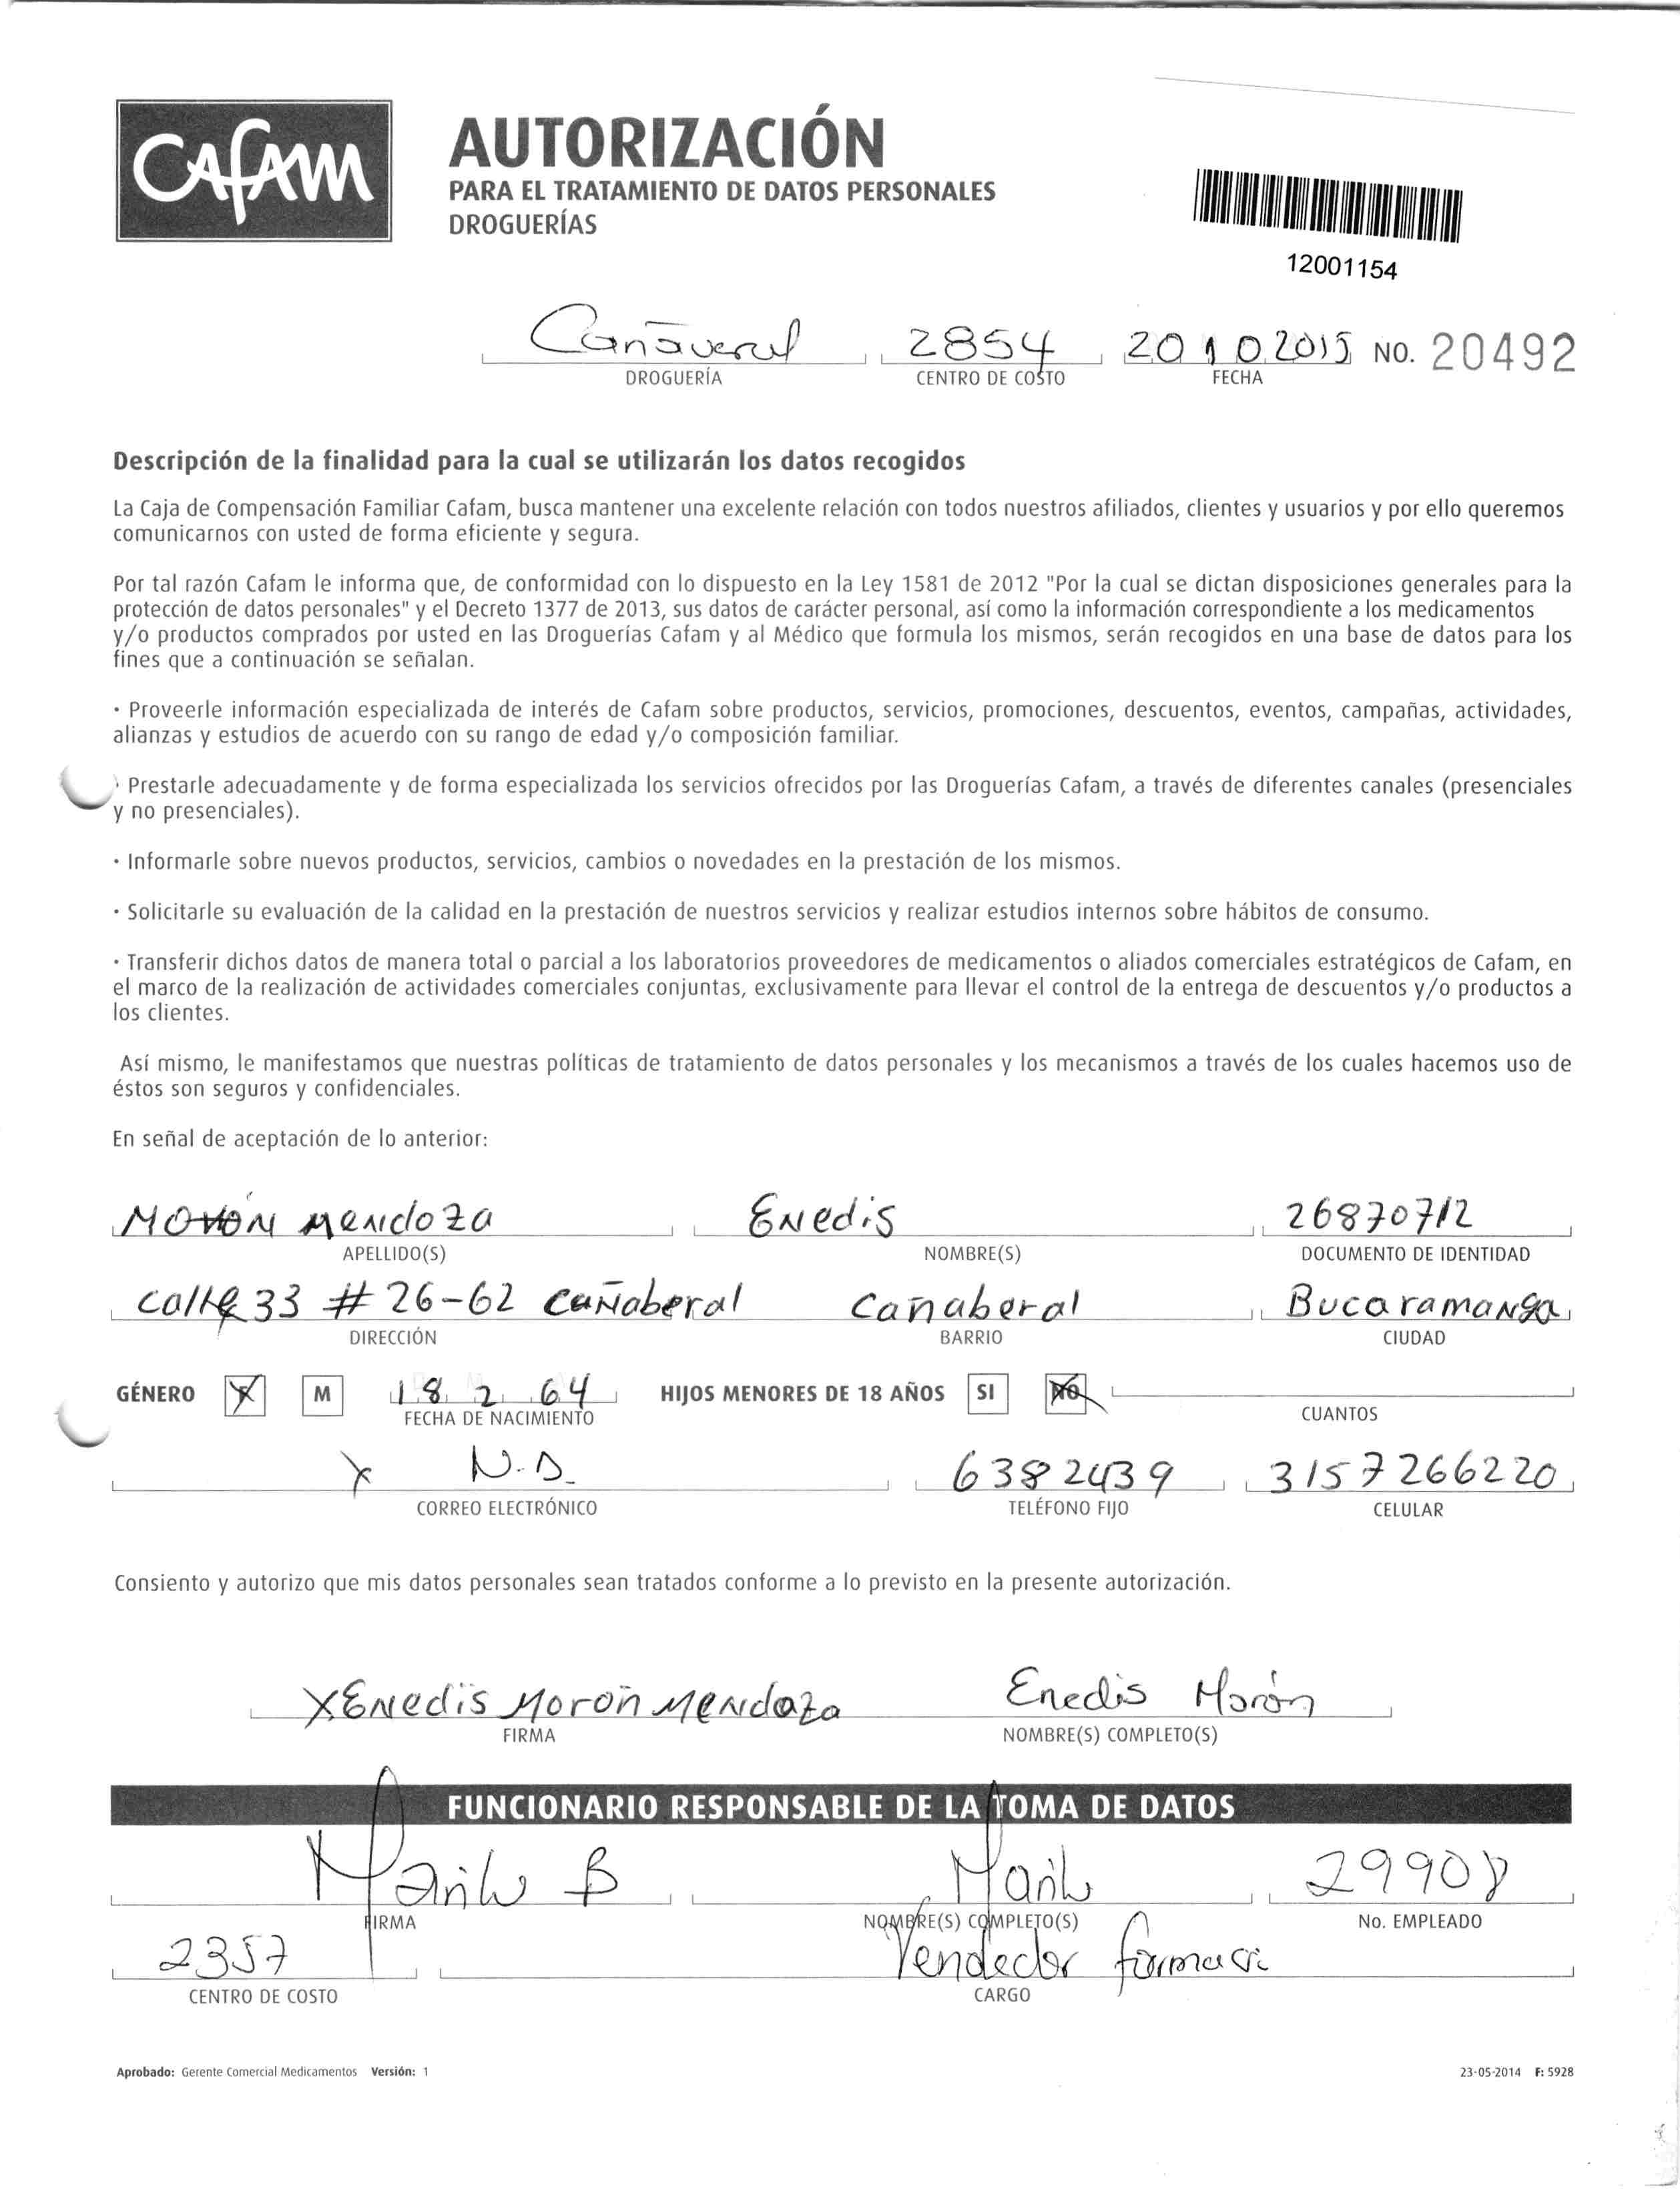 CAFAM
AUTORIZACIÓN
PARA EL TRATAMIENTO DE DATOS PERSONALES
DROGUERÍAS
12001154
Cañaveral 2854 20 10 2015 NO. 20492
DROGUERÍA CENTRO DE COSTO FECHA
Descripción de la finalidad para la cual se utilizarán los datos recogidos
La Caja de Compensación Familiar Cafam, busca mantener una excelente relación con todos nuestros afiliados, clientes y usuarios y por ello queremos
comunicarnos con usted de forma eficiente y segura.
Por tal razón Cafam le informa que, de conformidad con lo dispuesto en la Ley 1581 de 2012 "Por la cual se dictan disposiciones generales para la
protección de datos personales" y el Decreto 1377 de 2013, sus datos de carácter personal, así como la información correspondiente a los medicamentos
y/o productos comprados por usted en las Droguerías Cafam y al Médico que formula los mismos, serán recogidos en una base de datos para los
fines que a continuación se señalan.
· Proveerle información especializada de interés de Cafam sobre productos, servicios, promociones, descuentos, eventos, campañas, actividades,
alianzas y estudios de acuerdo con su rango de edad y/o composición familiar.
· Prestarle adecuadamente y de forma especializada los servicios ofrecidos por las Droguerías Cafam, a través de diferentes canales (presenciales
y no presenciales).
· Informarle sobre nuevos productos, servicios, cambios o novedades en la prestación de los mismos.
· Solicitarle su evaluación de la calidad en la prestación de nuestros servicios y realizar estudios internos sobre hábitos de consumo.
· Transferir dichos datos de manera total o parcial a los laboratorios proveedores de medicamentos o aliados comerciales estratégicos de Cafam, en
el marco de la realización de actividades comerciales conjuntas, exclusivamente para llevar el control de la entrega de descuentos y/o productos a
los clientes.
Así mismo, le manifestamos que nuestras políticas de tratamiento de datos personales y los mecanismos a través de los cuales hacemos uso de
éstos son seguros y confidenciales.
En señal de aceptación de lo anterior:
MORÓN MENdoza ENedis 26870712
APELLIDO(S) NOMBRE(S) DOCUMENTO DE IDENTIDAD
calle 33 # 26-62 cañaberal Cañaberal Bucaramanga
DIRECCIÓN BARRIO CIUDAD
GÉNERO F M 18 2 64 HIJOS MENORES DE 18 AÑOS SI NO
FECHA DE NACIMIENTO CUANTOS
X 6382439 3157266220
CORREO ELECTRÓNICO TELÉFONO FIJO CELULAR
Consiento y autorizo que mis datos personales sean tratados conforme a lo previsto en la presente autorización.
X ENedis Morón MENdoza Enedis Morón
FIRMA NOMBRE(S) COMPLETO(S)
FUNCIONARIO RESPONSABLE DE LA TOMA DE DATOS
29908
FIRMA NOMBRE(S) COMPLETO(S) No. EMPLEADO
2357 Vendedor
CENTRO DE COSTO CARGO
Aprobado: Gerente Comercial Medicamentos Versión: 1 23-05-2014 F: 5928